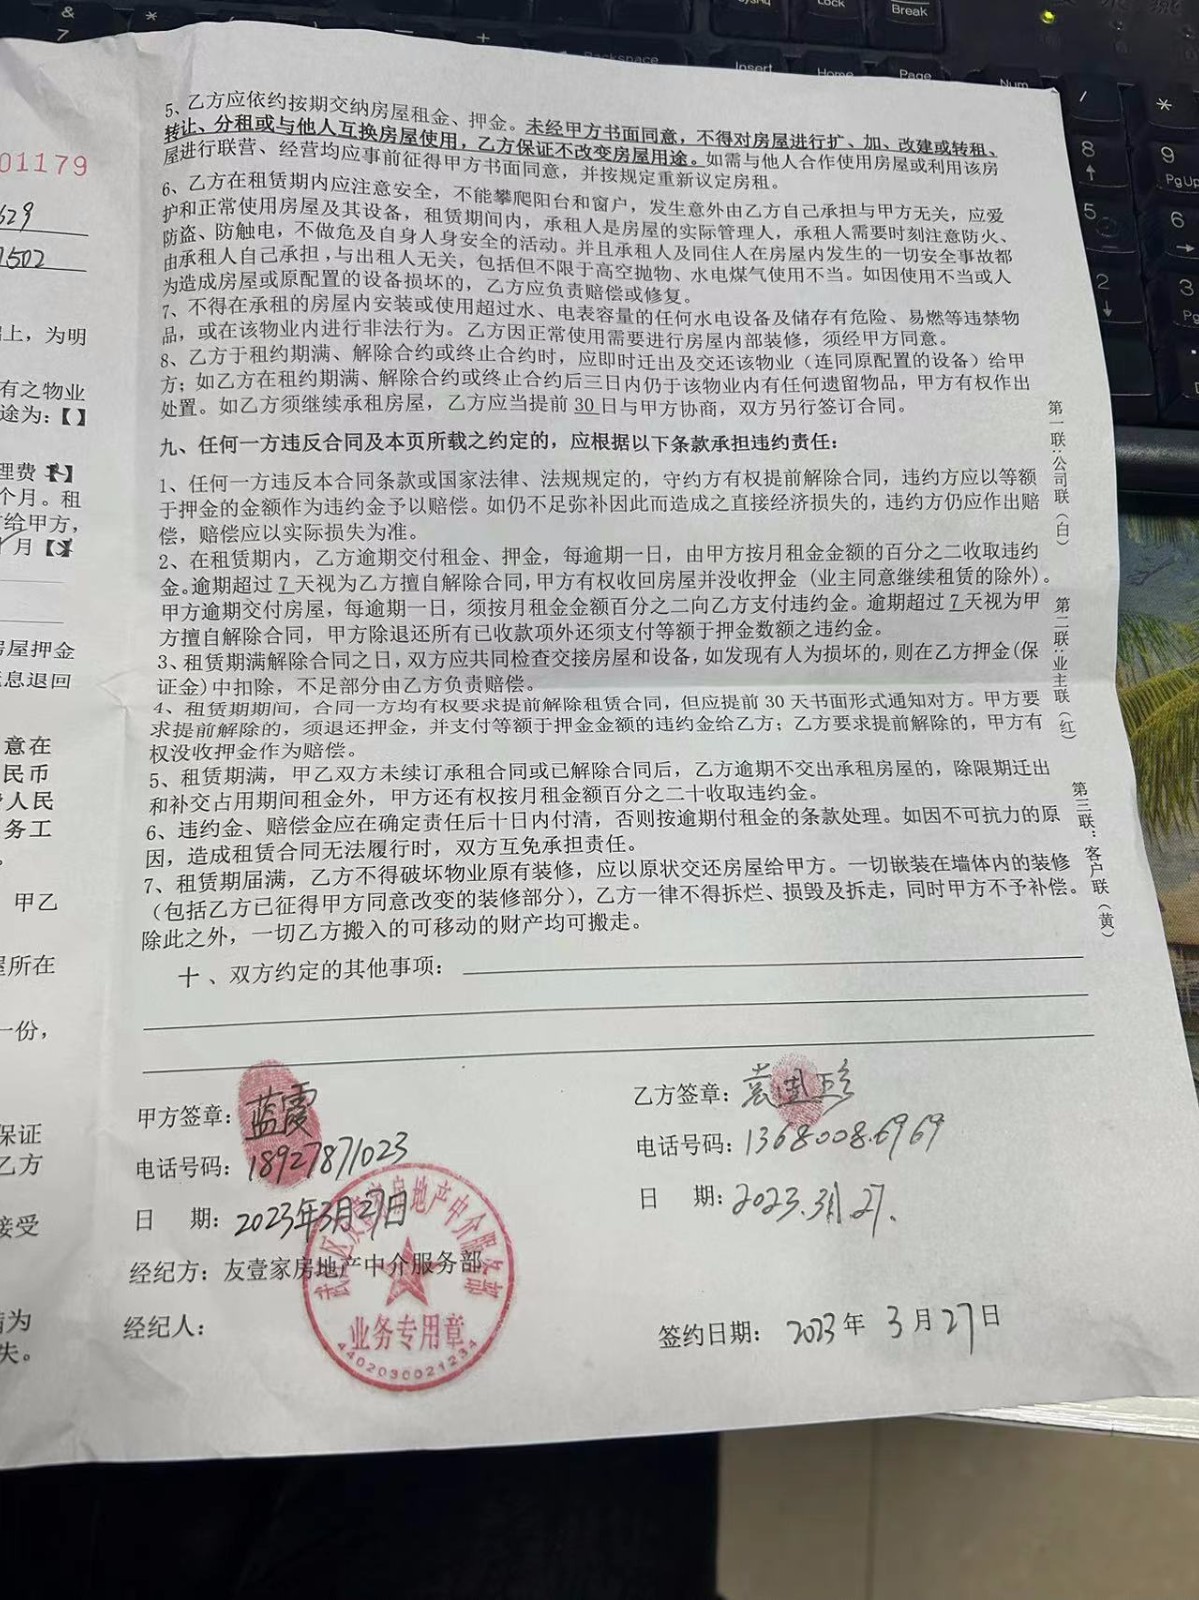 01179
629
1502
上，为明
有之物业
途为：【】
理费
个月。租
给甲方，
月
房屋押金
息退回
意在
民币
人民
务工
甲乙
屋所在
一份，
保证
乙方
接受
为
失。
5、乙方应依约按期交纳房屋租金、押金。未经甲方书面同意，不得对房屋进行扩、加、改建或转租、
转让、分租或与他人互换房屋使用，乙方保证不改变房屋用途。如需与他人合作使用房屋或利用该房
屋进行联营、经营均应事前征得甲方书面同意，并按规定重新议定房租。
6、乙方在租赁期内应注意安全，不能攀爬阳台和窗户，发生意外由乙方自己承担与甲方无关，应爱
护和正常使用房屋及其设备，租赁期间内，承租人是房屋的实际管理人，承租人需要时刻注意防火、
防盗、防触电，不做危及自身人身安全的活动。并且承租人及同住人在房屋内发生的一切安全事故都
由承租人自己承担，与出租人无关，包括但不限于高空抛物、水电煤气使用不当。如因使用不当或人
为造成房屋或原配置的设备损坏的，乙方应负责赔偿或修复。
7、不得在承租的房屋内安装或使用超过水、电表容量的任何水电设备及储存有危险、易燃等违禁物
品，或在该物业内进行非法行为。乙方因正常使用需要进行房屋内部装修，须经甲方同意。
8、乙方于租约期满、解除合约或终止合约时，应即时迁出及交还该物业（连同原配置的设备）给甲
方；如乙方在租约期满、解除合约或终止合约后三日内仍于该物业内有任何遗留物品，甲方有权作出
处置。如乙方须继续承租房屋，乙方应当提前30日与甲方协商，双方另行签订合同。
九、任何一方违反合同及本页所载之约定的，应根据以下条款承担违约责任：
1、任何一方违反本合同条款或国家法律、法规规定的，守约方有权提前解除合同，违约方应以等额
于押金的金额作为违约金予以赔偿。如仍不足弥补因此而造成之直接经济损失的，违约方仍应作出赔
偿，赔偿应以实际损失为准。
2、在租赁期内，乙方逾期交付租金、押金，每逾期一日，由甲方按月租金金额的百分之二收取违约
金。逾期超过7天视为乙方擅自解除合同，甲方有权收回房屋并没收押金（业主同意继续租赁的除外）。
甲方逾期交付房屋，每逾期一日，须按月租金金额百分之二向乙方支付违约金。逾期超过7天视为甲
方擅自解除合同，甲方除退还所有已收款项外还须支付等额于押金数额之违约金。
3、租赁期满解除合同之日，双方应共同检查交接房屋和设备，如发现有人为损坏的，则在乙方押金(保
证金)中扣除，不足部分由乙方负责赔偿。
4、租赁期期间，合同一方均有权要求提前解除租赁合同，但应提前30天书面形式通知对方。甲方要
求提前解除的，须退还押金，并支付等额于押金金额的违约金给乙方；乙方要求提前解除的，甲方有
权没收押金作为赔偿。
5、租赁期满，甲乙双方未续订承租合同或已解除合同后，乙方逾期不交出承租房屋的，除限期迁出
和补交占用期间租金外，甲方还有权按月租金额百分之二十收取违约金。
6、违约金、赔偿金应在确定责任后十日内付清，否则按逾期付租金的条款处理。如因不可抗力的原
因，造成租赁合同无法履行时，双方互免承担责任。
7、租赁期届满，乙方不得破坏物业原有装修，应以原状交还房屋给甲方。一切嵌装在墙体内的装修
（包括乙方已征得甲方同意改变的装修部分），乙方一律不得拆烂、损毁及拆走，同时甲方不予补偿。
除此之外，一切乙方搬入的可移动的财产均可搬走。
十、双方约定的其他事项：
第一联：公司联（白）
第二联：业主联（红）
第三联：客户联（黄）
甲方签章：蓝霞
电话号码：18927871023
日 期：2023年3月27日
经纪方：友壹家房地产中介服务部
经纪人：
乙方签章：袁国珍
电话号码：13680086969
日 期：2023.3月27.
签约日期：2023年3月27日
业务专用章
4402030021234
&
7
*
Backspace
Insert
Home
Page
Num
Lock
Break
/
*
8
9
PgUp
5
6
2
3